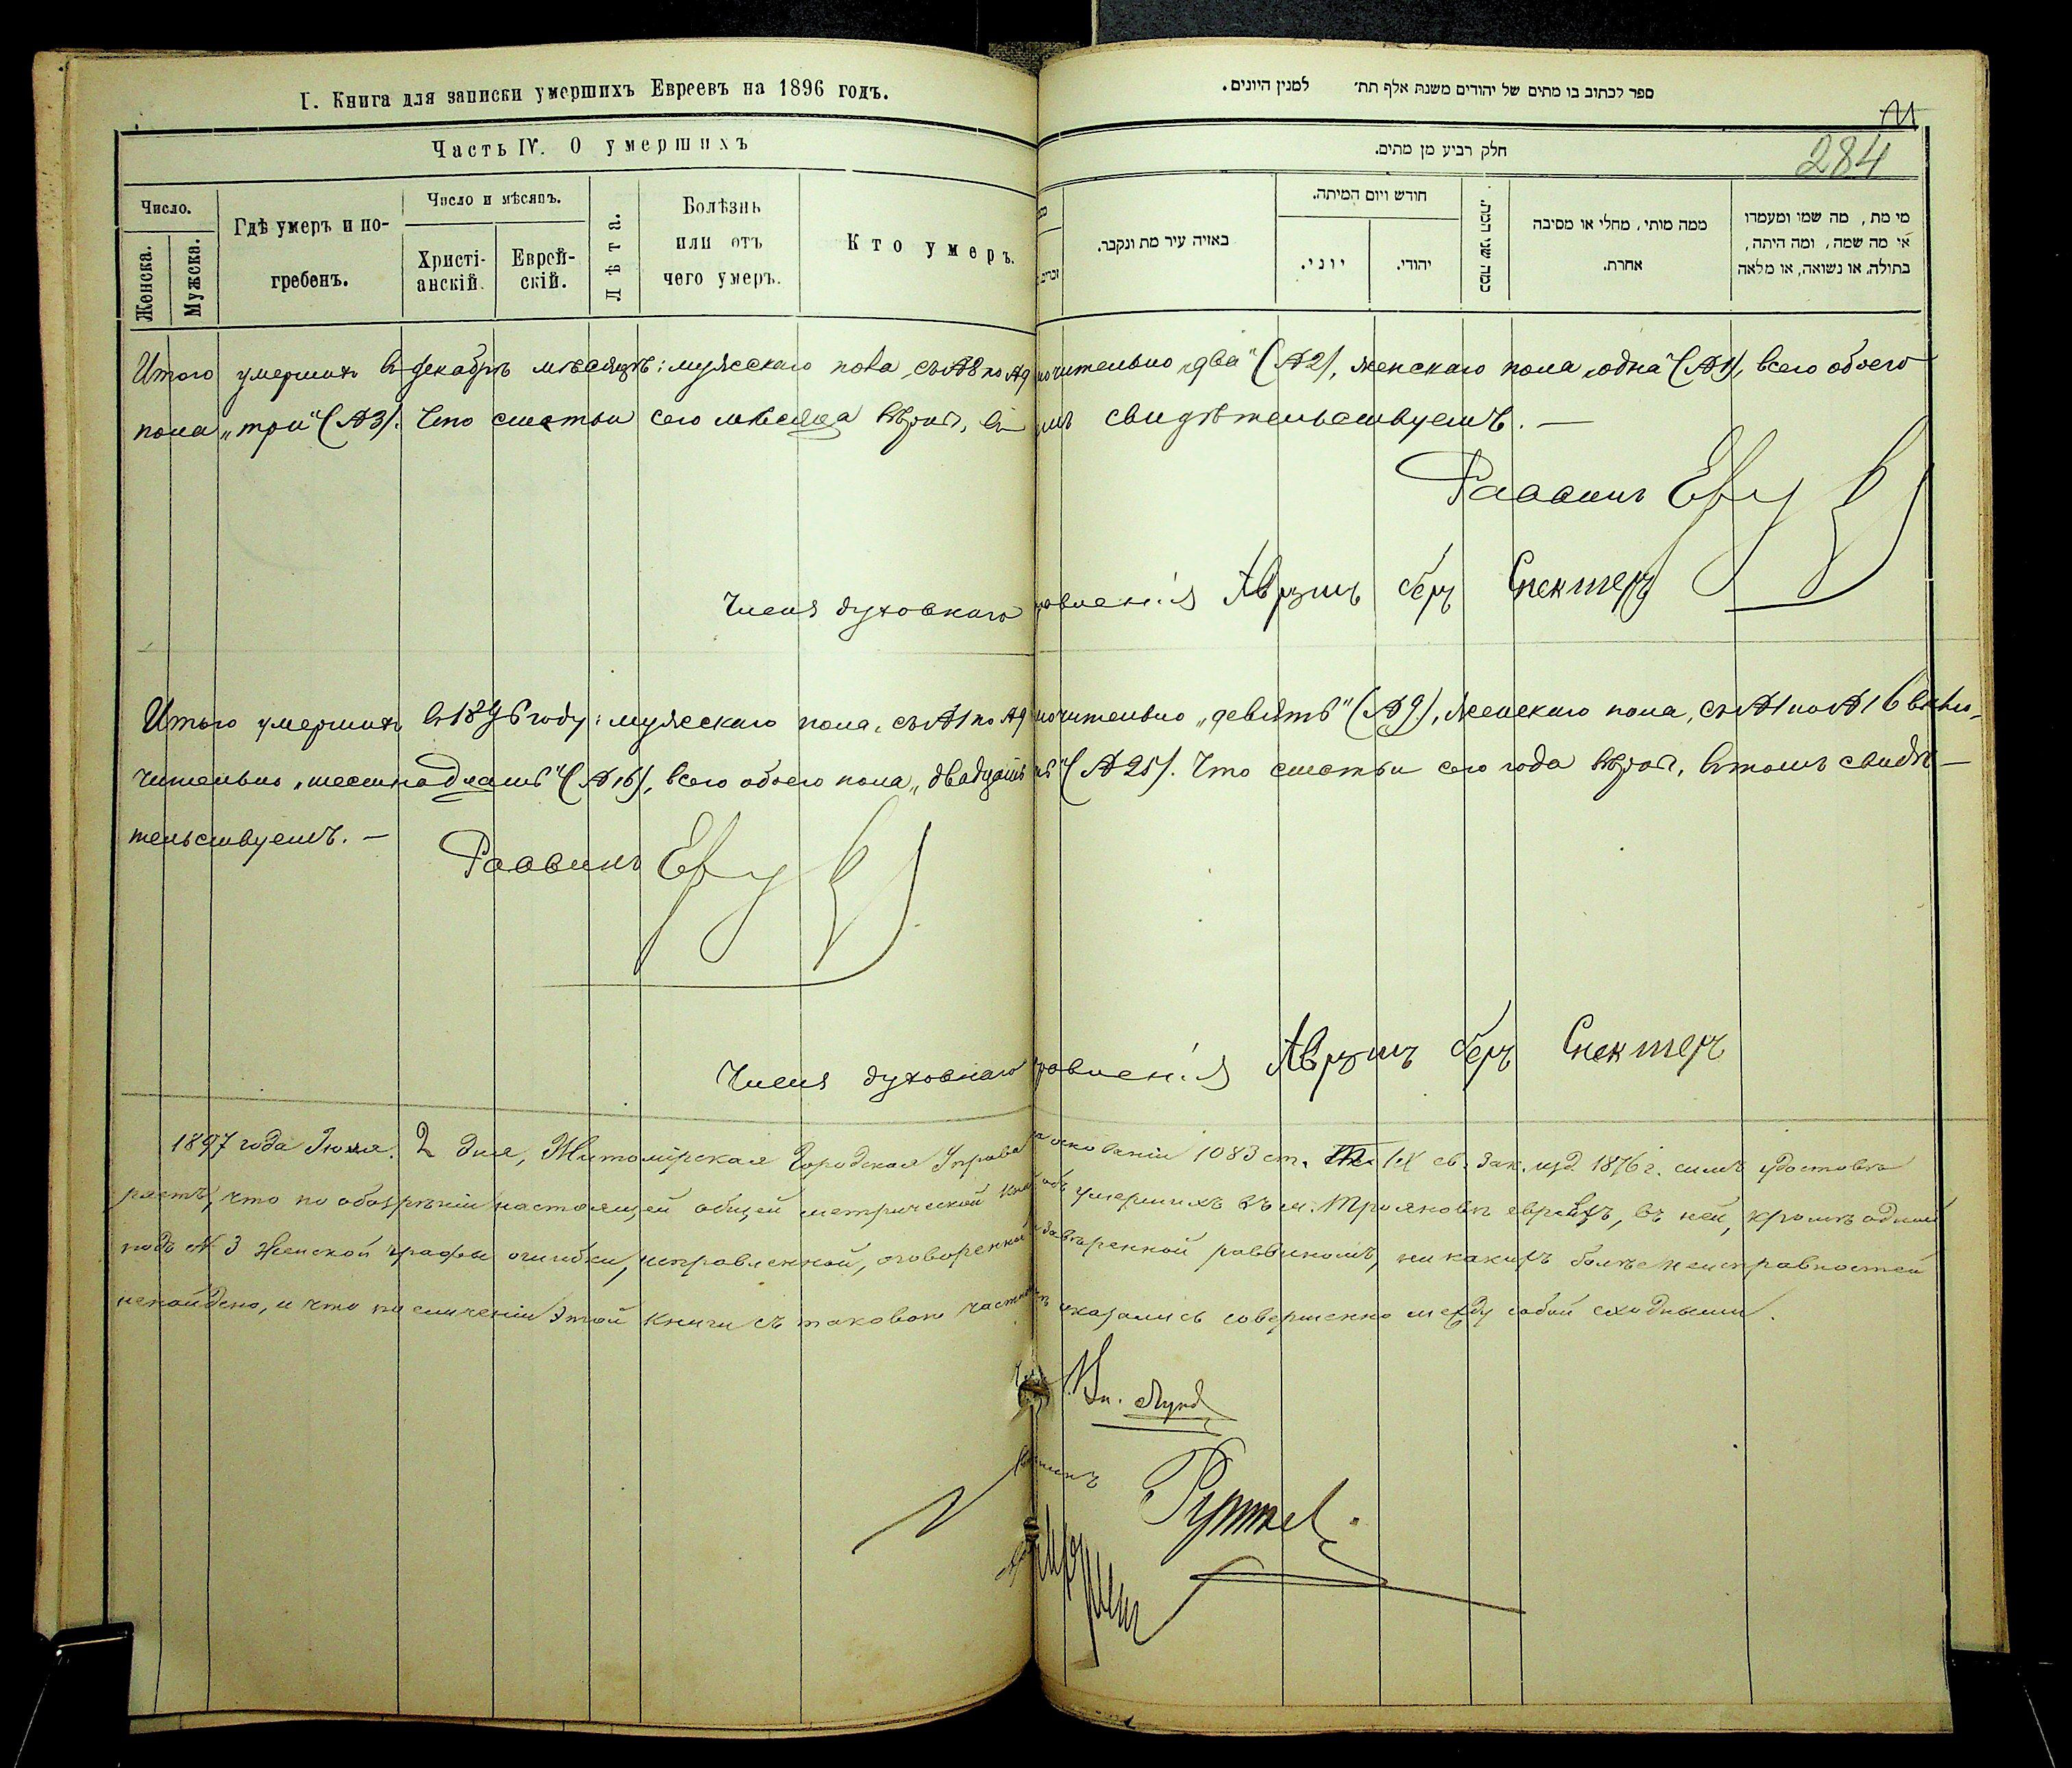 I. Книга для записки умершихъ Евреевъ на 1896 годъ.
Часть IV. О умершихъ
Число.
Женска.
Мужска.
Гдѣ умеръ и по-
гребенъ.
Число и мѣсяцъ.
Христі-
анскій.
Еврей-
скій.
Лѣта.
Болѣзнь
или отъ
чего умеръ.
Кто умеръ.
ספר לכתוב בו מתים של יהודים משנת אלף תת׳ למנין היונים.
11
284
חלק רביע מן מתים.
באיזה עיר מת ונקבר.
חודש ויום המיתה.
יוני.
יהודי.
כמה שני המת.
ממה מותו, מחלי או מסיבה
אחרת.
מי מת, מה שמו ומעמדו
או מה שמה, ומה היתה,
בתולה, או נשואה, או מלאה
Итого умершихъ въ декабрѣ мѣсяцѣ: мужескаго пола, съ №8 по №9 чительно „два" (№2), женскаго пола „одна" (№1), всего обоего
пола „три" (№3). Что смотки сего мѣсяца вѣрна, въ мъ свидѣтельствуемъ. —
Раввинъ
Члены духовнаго правленія Аврумъ беръ Спекторъ
Итого умершихъ въ 1896 году: мужескаго пола, съ №1 по №9 чительно „девять" (№9), женскаго пола, съ №1 по №16 вклю-
чительно „шестнадцать" (№16), всего обоего пола „двадцать ть" (№25). Что смотки сего года вѣрна, въ томъ свидѣ-
тельствуемъ. —
Раввинъ
Члены духовнаго правленія Аврумъ беръ Спекторъ
1897 года Іюня 2 дня, Житомірская Городская Управа на основаніи 1083 ст. IX св. Зак. изд. 1876 г. симъ удостовѣ
ряетъ, что по обозрѣніи настоящей общей метрической книги объ умершихъ въ м. Трояновѣ евреяхъ, въ ней, кромѣ одной
подъ № 3 женской графы ошибки, исправленной, оговоренной и завѣренной раввиномъ, никакихъ болѣе неисправностей
ненайдено, и что по сличеніи этой книги съ таковою оказались совершенно между собой сходными.